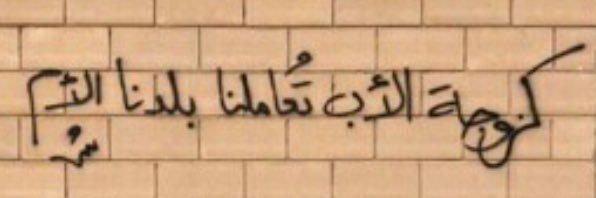 كزوجة الأب تُعاملنا بلدنا الأم